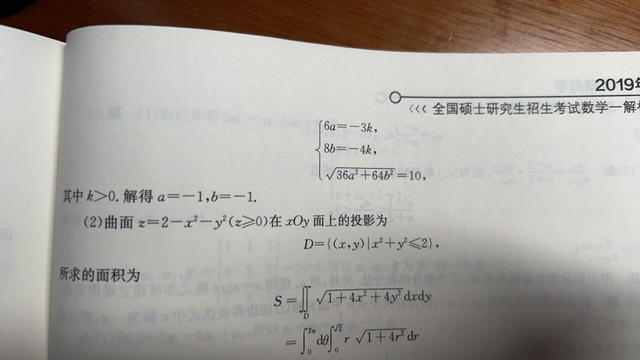 2019年
‹‹‹ 全国硕士研究生招生考试数学一解析
6a=-3k,
8b=-4k,
√(36a²+64b²)=10,
其中 k>0. 解得 a=-1,b=-1.
(2)曲面 z=2-x²-y²(z≥0)在 xOy 面上的投影为
D={(x,y)|x²+y²≤2},
所求的面积为
S=∬_D √(1+4x²+4y²) dxdy
=∫₀^{2π} dθ∫₀^{√2} r √(1+4r²) dr